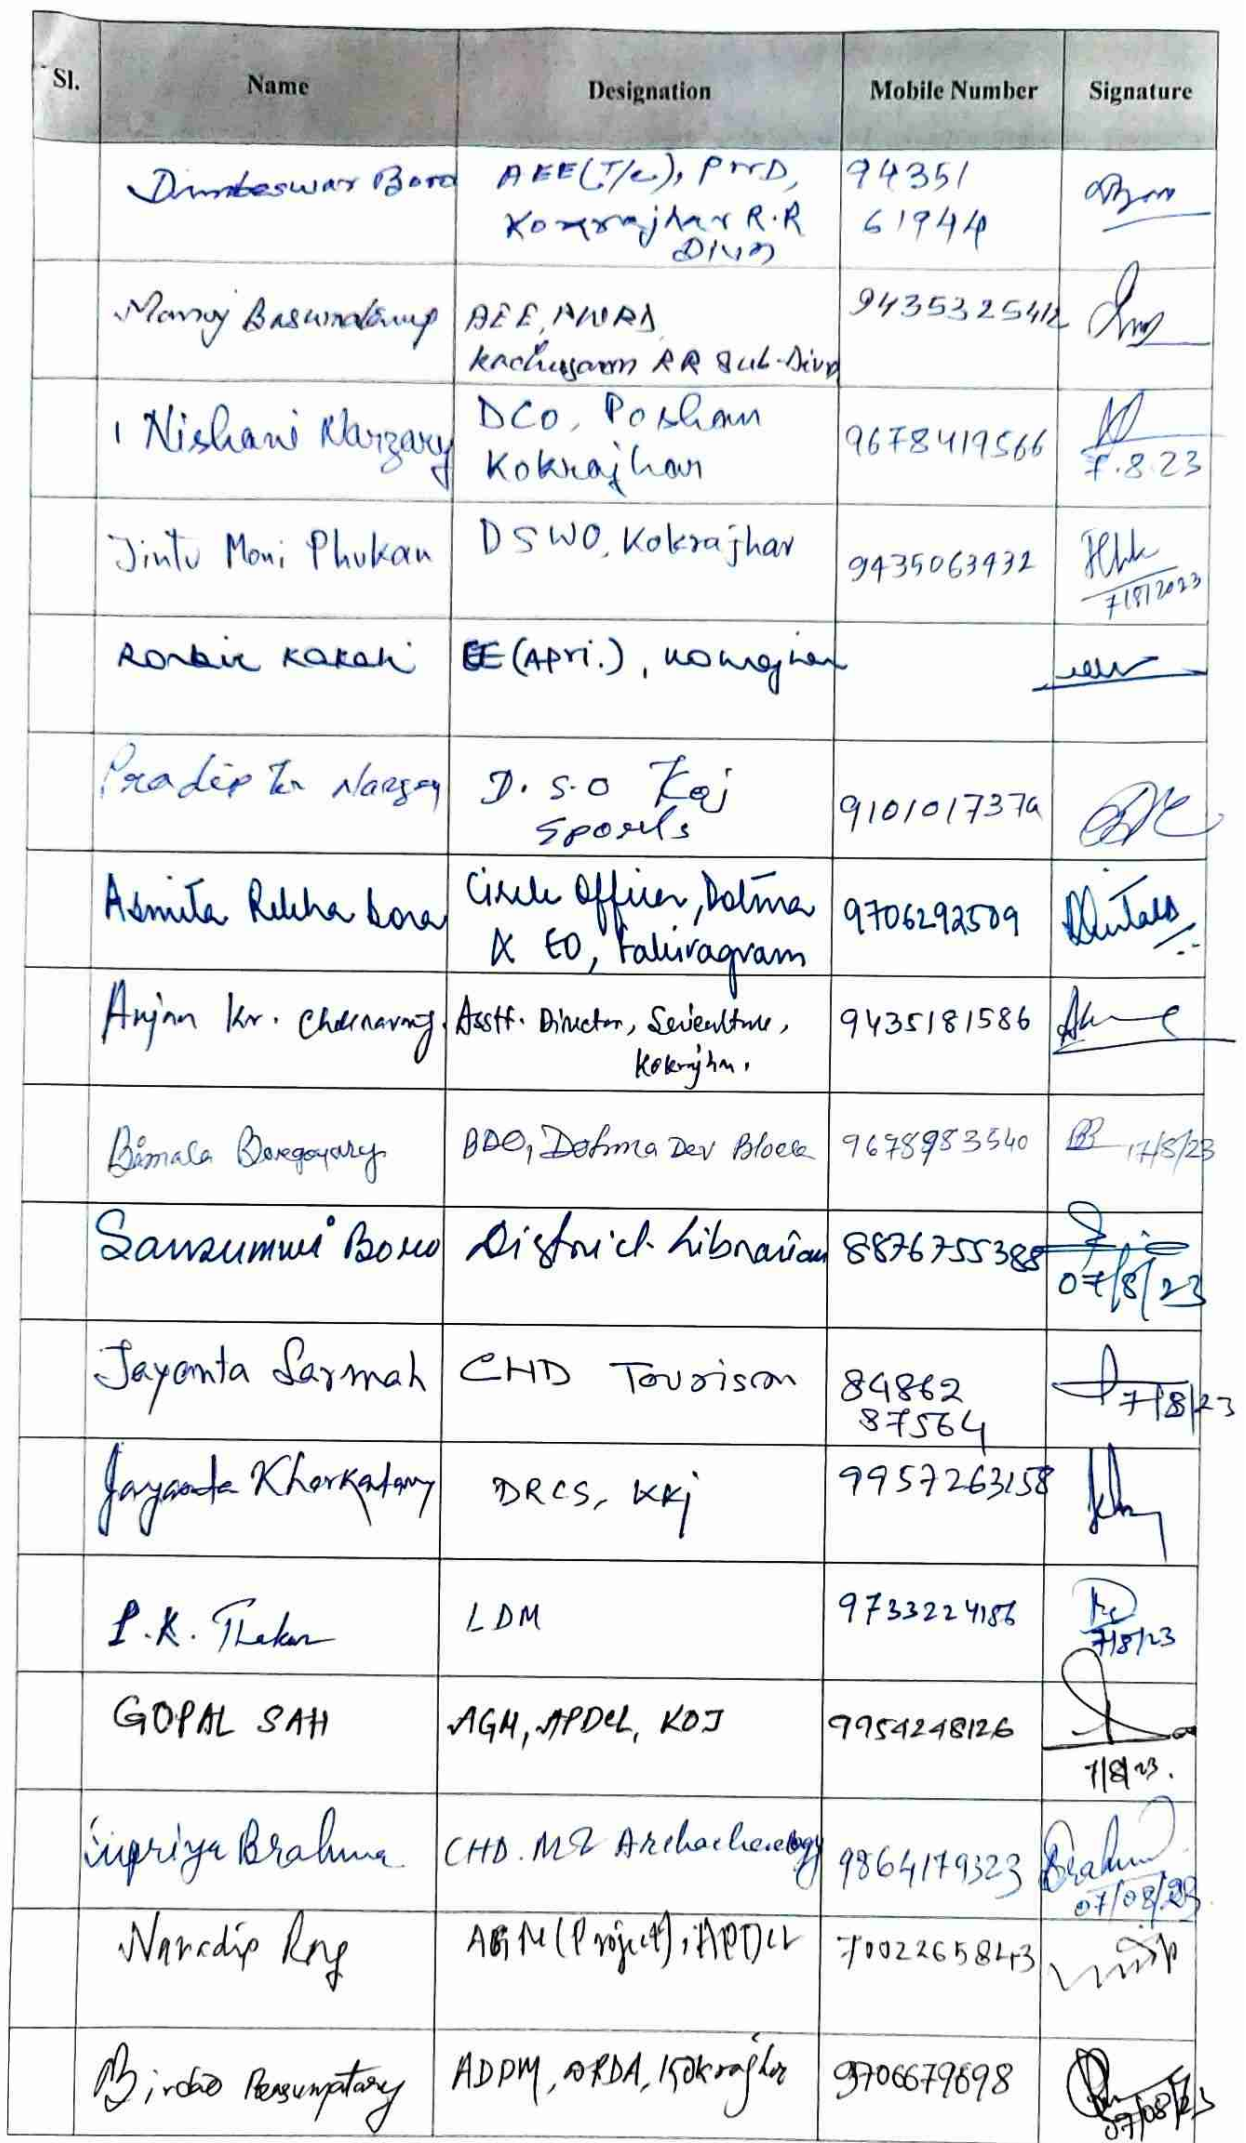 Sl. Name Designation Mobile Number Signature
Dimbeswar Boro AEE(T/C), PWD, 94351
Kokrajhar R.R 61944
Divn
Manoj Basumatary AEE, PWRD 9435325412
Kachugaon RR Sub-Divn
1 Nishani Narzary DCO, Poshan
Kokrajhar 9678419566
7.8.23
Jintu Moni Phukan DSWO, Kokrajhar 9435063432
7/8/2023
EE (Apri.), Kokrajhar
Pradip Kr Narzary D.S.O Koj 9101017379
Sports
Asmita Rekha Bora Circle Officer, Dotma 9706292509
& EO, Fakiragram
Anjan Kr. Asstt. Director, Sericulture, 9435181586
Kokrajhar.
Bimala Boregoyary BDO, Dotma Dev Block 9678983540 17/8/23
Sansumwi Boro District Librarian 8876755388
07/8/23
Jayanta Sarmah CHD Tourism 84862
87564 7/8/23
Jayanta Kherkatary DRCS, KKj 9957263158
P.K. LDM 9733224186
7/8/23
GOPAL SAH AGM, APDCL, KOJ 9954248126
7/8/23.
Supriya Brahma CHD. Archacheology 9864179323 Brahma
07/08/23
AGM (Project), APDCL 7002265843
Birdao Basumatary ADPM, DRDA, Kokrajhar 9706679698
07/08/23